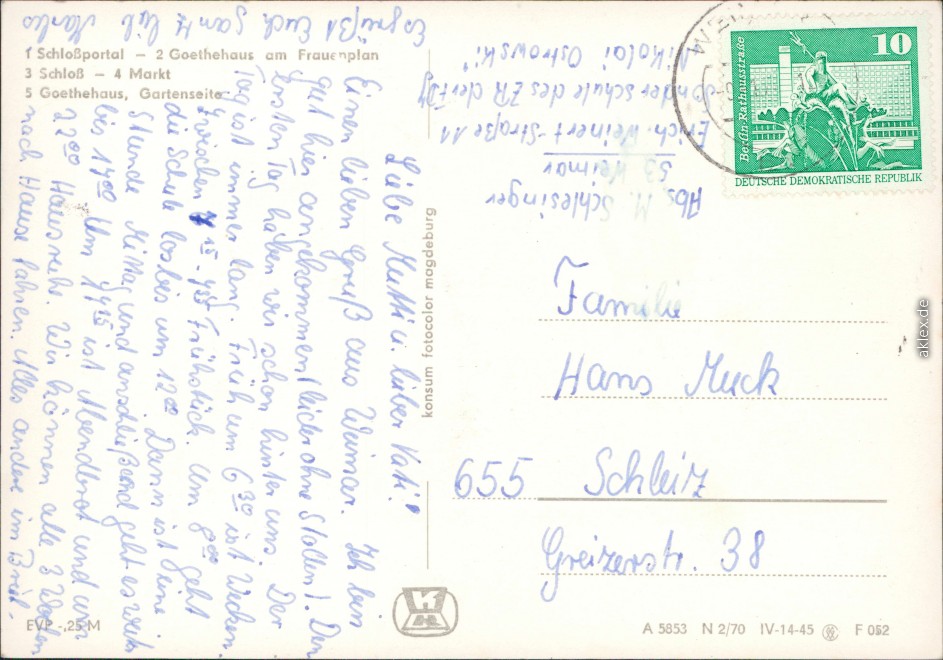 1 Schloßportal — 2 Goethehaus am Frauenplan
3 Schloß — 4 Markt
5 Goethehaus, Gartenseite
Liebe Mutti u. lieber Vati!
Einen lieben Gruß aus Weimar. Ich bin
gut hier angekommen (leider ohne Stollen). Den
ersten Tag haben wir schon hinter uns. Der
Tag ist immer lang. Früh um 6³⁰ ist Wecken.
Zwischen 7¹⁵-7⁵⁵ Frühstück. Um 8⁰⁰ geht
die Schule los bis um 12⁰⁰. Dann ist eine
Stunde Mittag und anschließend geht es weiter
bis 17⁰⁰. Um 19¹⁵ ist Abendbrot und um
22⁰⁰ Hausruhe. Wir können alle 3 Wochen
nach Hause fahren. Alles andere im Brief.
Es grüßt Euch ganz lieb
Abs. M. Schlesinger
53 Weimar
Erich-Weinert-Straße 11
Sonderschule des ZR der FDJ
"Nikolai Ostrowski"
WEIM
10
Berlin-Rathausstraße
DEUTSCHE DEMOKRATISCHE REPUBLIK
Familie
Hans Muck
655 Schleiz
Greizerstr. 38
konsum fotocolor magdeburg
EVP -,25 M
A 5853 N 2/70 IV-14-45 F 052
aklex.de